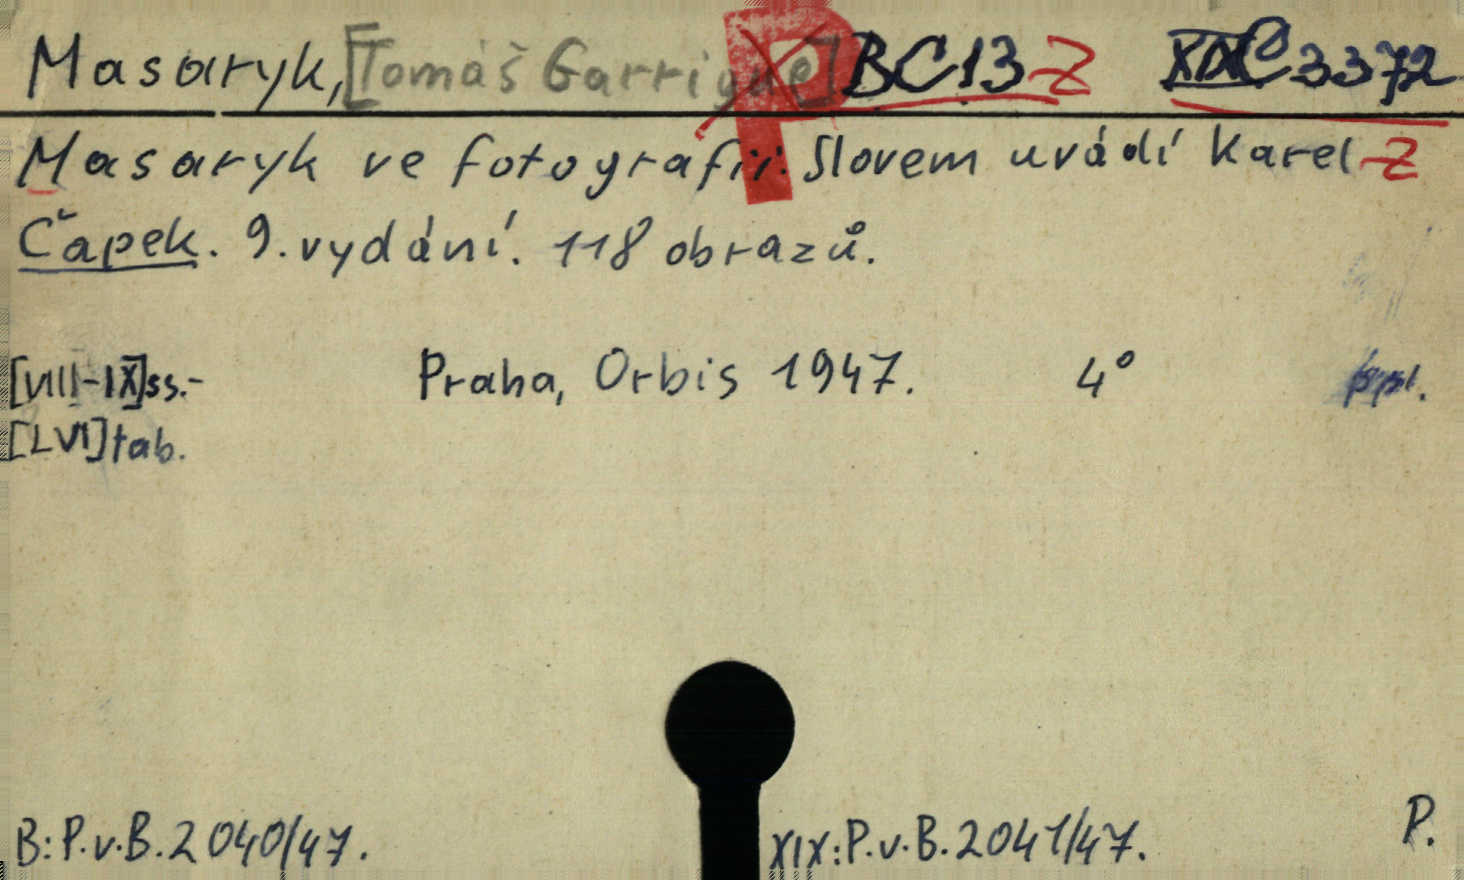 Masaryk, [Tomáš Garrigue] P BC13 Z XIX C 3372
Masaryk ve fotografii. Slovem uvádí Karel Z
Čapek. 9. vydání. 118 obrazů.
[VIII-IX]ss.- Praha, Orbis 1947. 4°
[LVI] tab.
B: P.v.B. 2040/47. XIX: P.v.B. 2041/47. P.